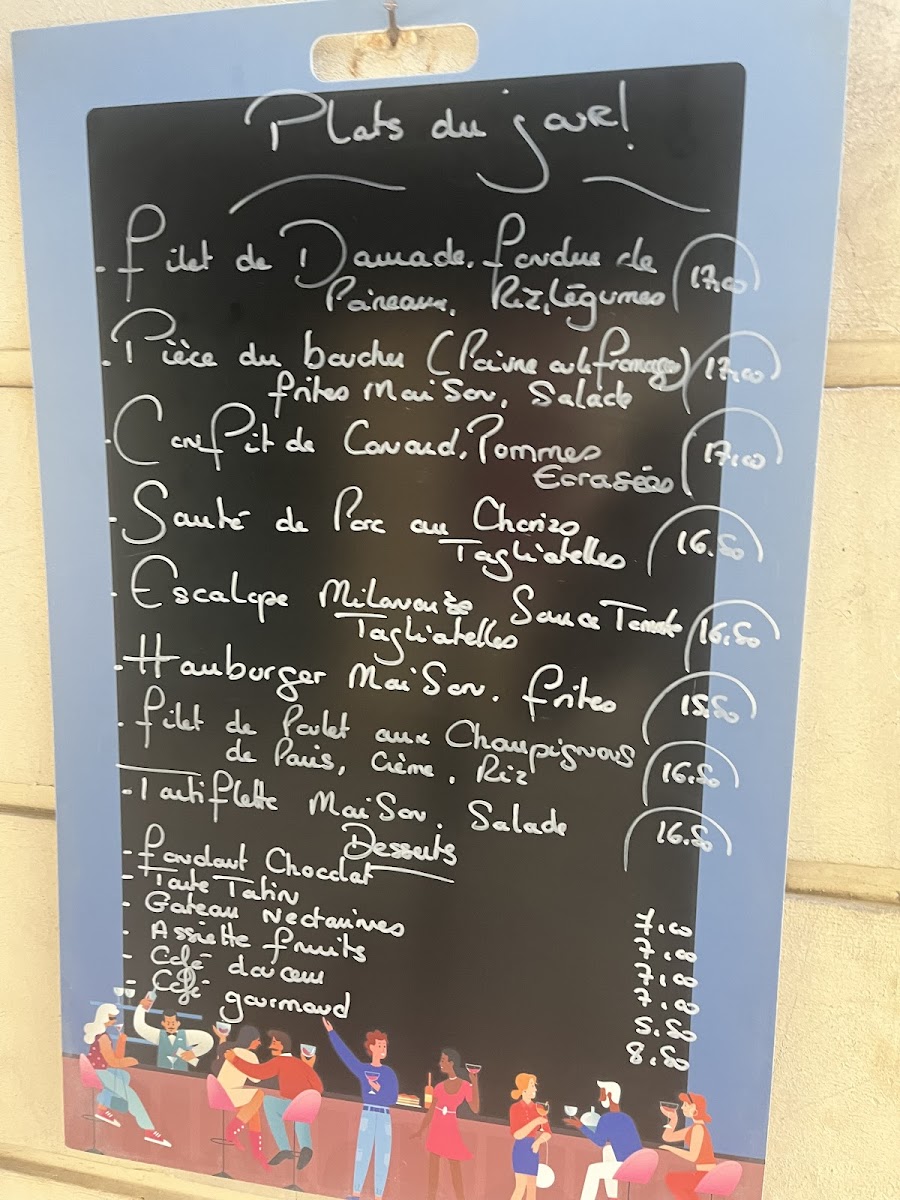 Plats du jour!
- Filet de Daurade, fondue de 17,00
Poireaux, Riz, légumes
- Pièce du boucher (Poivre ou le fromage) 17,00
frites Maison, Salade
- Confit de Canard, Pommes 17,00
Ecrasées
- Sauté de Porc au Chorizo 16.50
Tagliatelles
- Escalope Milanaise Sauce Tomate 16,50
Tagliatelles
- Hamburger Maison, frites 15.50
- filet de Poulet aux Champignons 16.50
de Paris, Crème, Riz
- Tartiflette Maison, Salade 16.50
Desserts
- Fondant Chocolat 7,00
- Tarte Tatin 7,00
- Gateau Nectarines 7,00
- Assiette fruits 7,00
- Café douceur 5.50
- Café gourmand 8.50